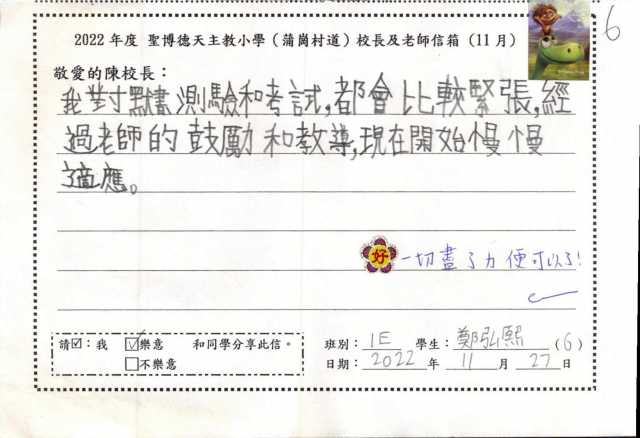 2022 年度 聖博德天主教小學（蒲崗村道）校長及老師信箱（11 月）
6
敬愛的陳校長：
我對默書測驗和考試,都會比較緊張,經
過老師的鼓勵和教導,現在開始慢慢
適應。
好
一切盡了力便可以了!
請☑：我 ☑樂意 和同學分享此信。
□不樂意
班別：1E 學生：鄭弘熙（6）
日期：2022 年 11 月 27 日